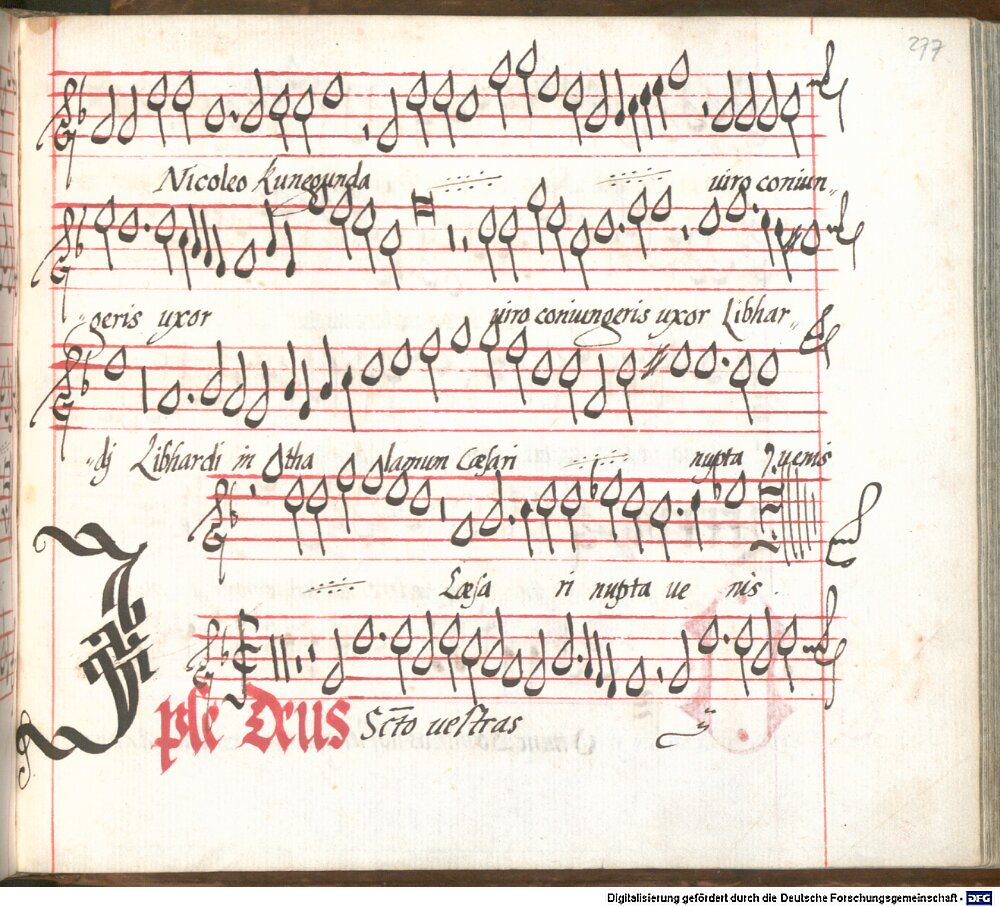 277
Nicoleo Kunegunda uiro coniun-
-geris uxor uiro coniungeris uxor Libhar-
-dj Libhardi in thalamum Cæsari nupta uenis
Cæsa ri nupta ue nis.
Ipse Deus Scto uestras ij
Digitalisierung gefördert durch die Deutsche Forschungsgemeinschaft - DFG